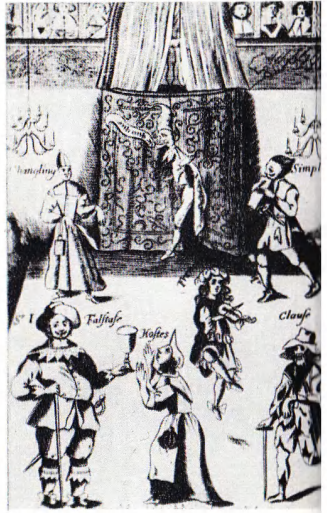 Changling
Simpl
Sr I Falstafe
Hostes
Clause